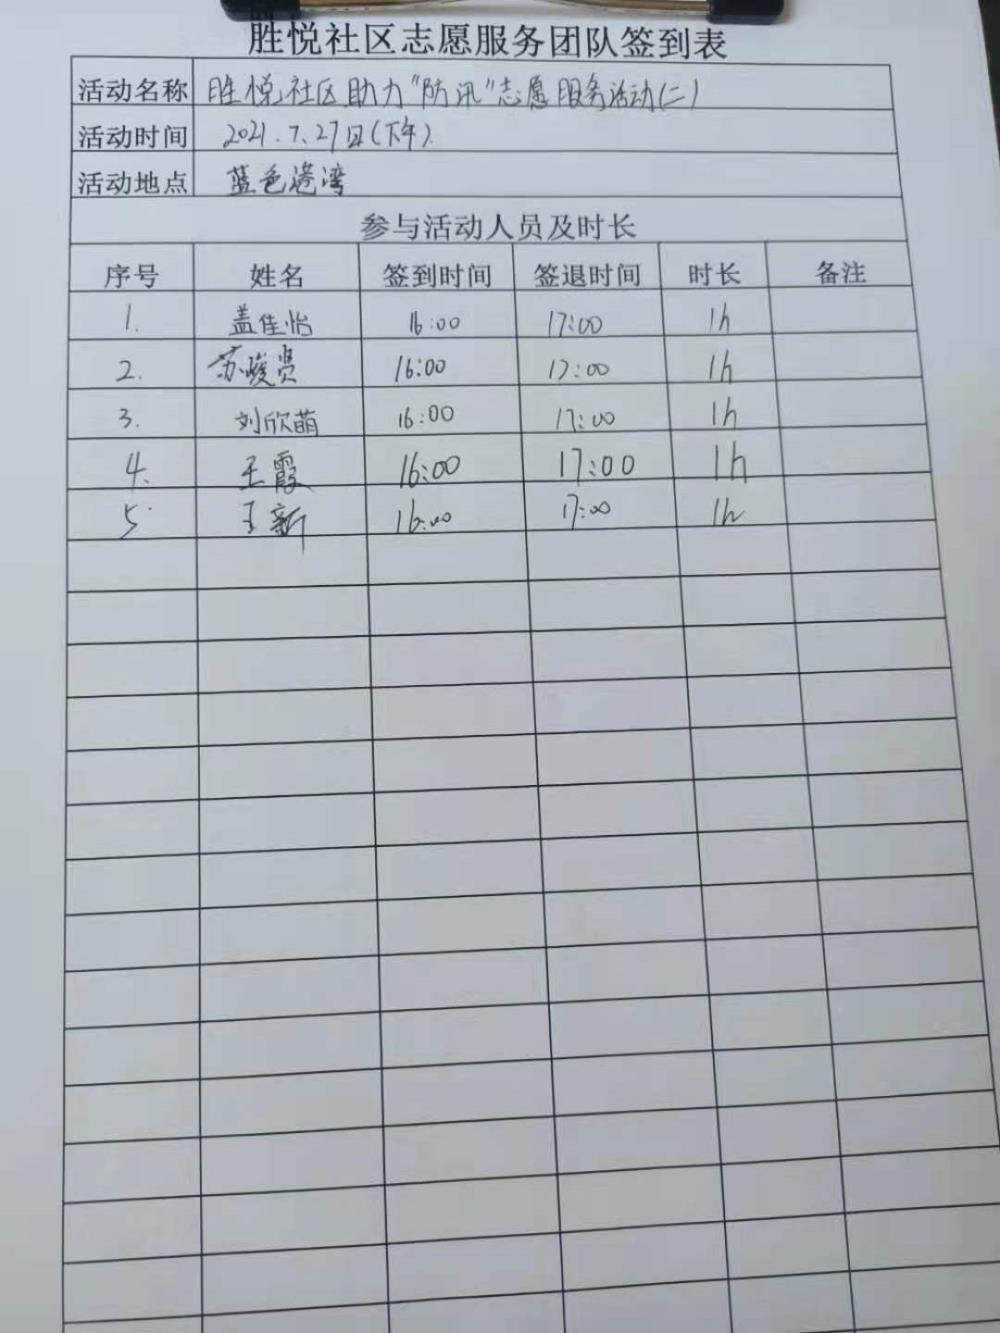 胜悦社区志愿服务团队签到表
活动名称 胜悦社区助力"防汛"志愿服务活动(二)
活动时间 2021.7.27日(下午).
活动地点 蓝色港湾
参与活动人员及时长
序号 姓名 签到时间 签退时间 时长 备注
1. 盖佳怡 16:00 17:00 1h
2. 苏峻贤 16:00 17:00 1h
3. 刘欣萌 16:00 17:00 1h
4. 王霞 16:00 17:00 1h
5. 王新 16:00 17:00 1h